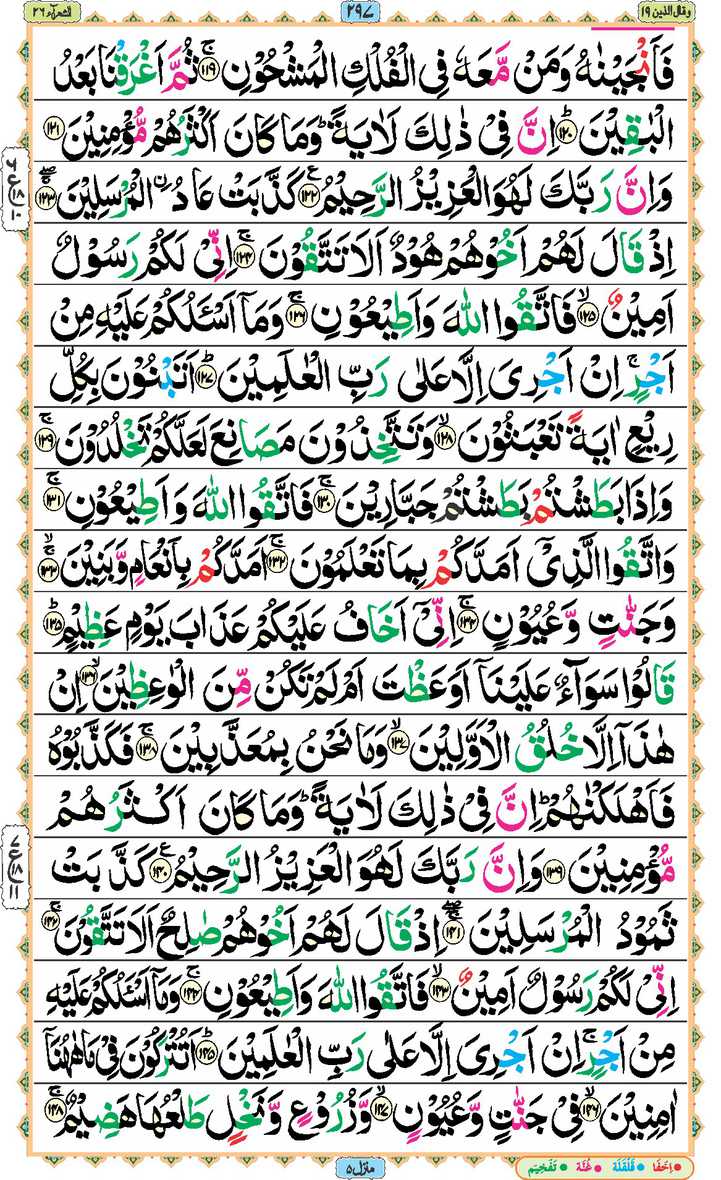 وقال الذين ١٩ ٢٩٧ الشعرآء ٢٦
فَاَنْجَيْنٰهُ وَمَنْ مَّعَهٗ فِى الْفُلْكِ الْمَشْحُوْنِ ۚ‏﴿۱۱۹﴾ ثُمَّ اَغْرَقْنَا بَعْدُ
الْبٰقِيْنَ ؕ‏﴿۱۲۰﴾ اِنَّ فِىْ ذٰ لِكَ لَاٰيَةً ؕ وَّمَا كَانَ اَكْثَرُهُمْ مُّؤْمِنِيْنَ‏﴿۱۲۱﴾
وَاِنَّ رَبَّكَ لَهُوَ الْعَزِيْزُ الرَّحِيْمُ ‏﴿۱۲۲﴾ كَذَّبَتْ عَادُ اۨلْمُرْسَلِيْنَ ۖ ۚ‏﴿۱۲۳﴾
اِذْ قَالَ لَهُمْ اَخُوْهُمْ هُوْدٌ اَلَا تَتَّقُوْنَ‌ۚ‏﴿۱۲۴﴾ اِنِّىْ لَـكُمْ رَسُوْلٌ
اَمِيْنٌۙ‏﴿۱۲۵﴾ فَاتَّقُوا اللّٰهَ وَ اَطِيْعُوْنِ‌ۚ‏﴿۱۲۶﴾ وَمَاۤ اَسْئَـلُكُمْ عَلَيْهِ مِنْ
اَجْرٍ‌ۚ اِنْ اَجْرِىَ اِلَّا عَلٰى رَبِّ الْعٰلَمِيْنَؕ‏﴿۱۲۷﴾ اَتَبْنُوْنَ بِكُلِّ
رِيْعٍ اٰيَةً تَعْبَثُوْنَۙ‏﴿۱۲۸﴾ وَ تَتَّخِذُوْنَ مَصَانِعَ لَعَلَّكُمْ تَخْلُدُوْنَ‌ۚ‏﴿۱۲۹﴾
وَاِذَا بَطَشْتُمْ بَطَشْتُمْ جَبَّارِيْنَ‌ۚ‏﴿۱۳۰﴾ فَاتَّقُوا اللّٰهَ وَاَطِيْعُوْنِ‌ۚ‏﴿۱۳۱﴾
وَاتَّقُوا الَّذِىْۤ اَمَدَّكُمْ بِمَا تَعْلَمُوْنَ‌ۚ‏﴿۱۳۲﴾ اَمَدَّكُمْ بِاَنْعَامٍ وَّبَنِيْنَ ۙۚ‏﴿۱۳۳﴾
وَجَنّٰتٍ وَّعُيُوْنٍ‌ۚ‏﴿۱۳۴﴾ اِنِّىْۤ اَخَافُ عَلَيْكُمْ عَذَابَ يَوْمٍ عَظِيْمٍؕ‏﴿۱۳۵﴾
قَالُوْا سَوَآءٌ عَلَيْنَاۤ اَوَعَظْتَ اَمْ لَمْ تَكُنْ مِّنَ الْوٰعِظِيْنَۙ‏﴿۱۳۶﴾ اِنْ
هٰذَاۤ اِلَّا خُلُقُ الْاَوَّلِيْنَۙ‏﴿۱۳۷﴾ وَمَا نَحْنُ بِمُعَذَّبِيْنَ‌ۚ‏﴿۱۳۸﴾ فَكَذَّبُوْهُ
فَاَهْلَـكْنٰهُمْ‌ؕ اِنَّ فِىْ ذٰلِكَ لَاٰيَةً‌ ؕ وَّمَا كَانَ اَكْثَرُهُمْ
مُّؤْمِنِيْنَ‏﴿۱۳۹﴾ وَاِنَّ رَبَّكَ لَهُوَ الْعَزِيْزُ الرَّحِيْمُ ‏﴿۱۴۰﴾ كَذَّبَتْ
ثَمُوْدُ الْمُرْسَلِيْنَ‌ ۖۚ‏﴿۱۴۱﴾ اِذْ قَالَ لَهُمْ اَخُوْهُمْ صٰلِحٌ اَلَا تَتَّقُوْنَ‌ۚ‏﴿۱۴۲﴾
اِنِّىْ لَـكُمْ رَسُوْلٌ اَمِيْنٌۙ‏﴿۱۴۳﴾ فَاتَّقُوا اللّٰهَ وَاَطِيْعُوْنِ‌ۚ‏﴿۱۴۴﴾ وَمَاۤ اَسْئَـلُكُمْ عَلَيْهِ
مِنْ اَجْرٍ‌ۚ اِنْ اَجْرِىَ اِلَّا عَلٰى رَبِّ الْعٰلَمِيْنَؕ‏﴿۱۴۵﴾ اَتُتْرَكُوْنَ فِىْ مَا هٰهُنَاۤ
اٰمِنِيْنَۙ‏﴿۱۴۶﴾ فِىْ جَنّٰتٍ وَّعُيُوْنٍۙ‏﴿۱۴۷﴾ وَّزُرُوْعٍ وَّنَخْلٍ طَلْعُهَا هَضِيْمٌ‌ۚ‏﴿۱۴۸﴾
ع ٦ ١٨ ١٠
ع ٧ ١٨ ١١
منزل ٥
اِخفَا • قَلقَلَة • غُنَّة • تَفْخِيْم •